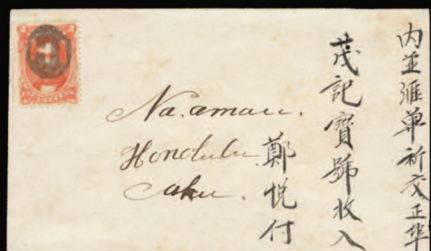 內並滙单祈交正华
茂記寳號收入
鄭悅付
Na.amau.
Honolulu
Oahu.